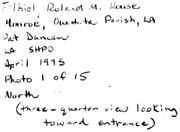 Filhiol, Roland M. House
Monroe, Ouachita Parish, LA
Pat Duncan
LA SHPO
April 1995
Photo 1 of 15
North
(three-quarter view looking
toward entrance)